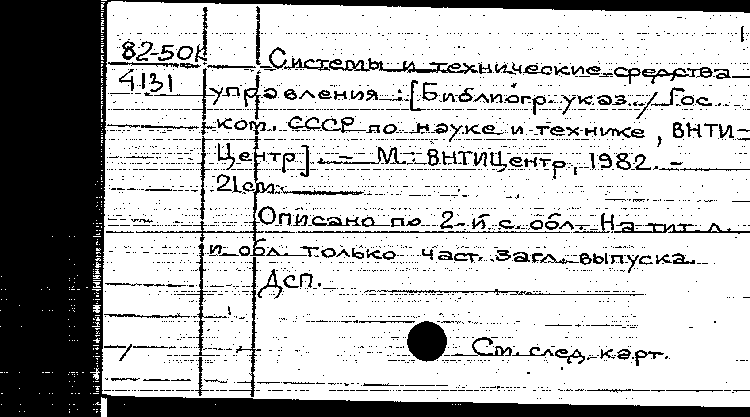 82-50к
4131
Системы и технические средства
управления : [Библиогр. указ. / Гос.
ком. СССР по науке и технике, ВНТИ-
Центр]. – М.: ВНТИЦентр, 1982. –
21см.
Описано по 2-й с. обл. На тит. л.
и обл. только част. загл. выпуска.
ДСП.
См. след. карт.